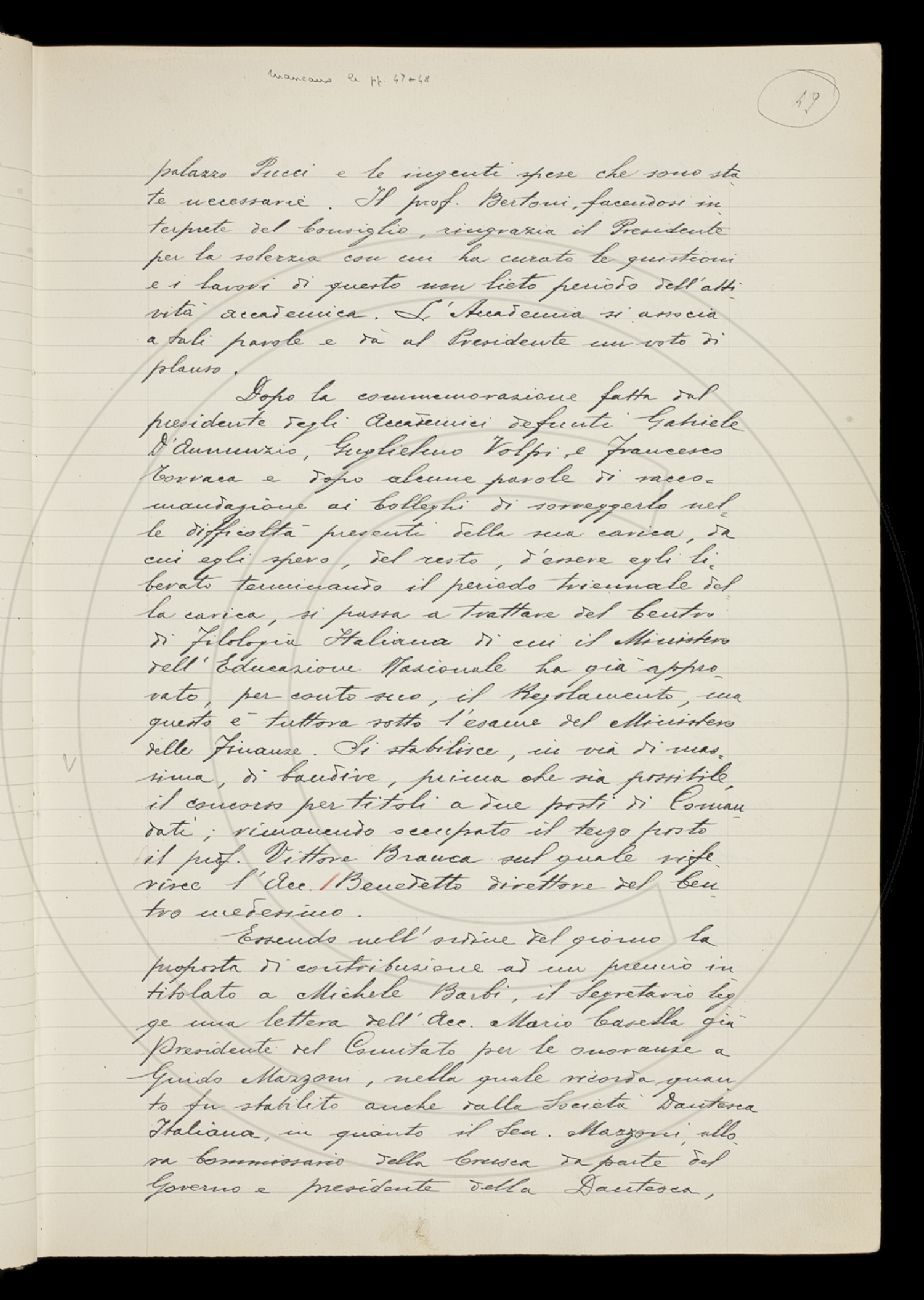 mancano le pp. 47 e 48
49
palazzo Pucci e le ingenti spese che sono sta
te necessarie. Il prof. Bertoni, facendosi in
terprete del Consiglio, ringrazia il Presidente
per la solerzia con cui ha curato le quistioni
e i lavori di questo non lieto periodo dell'atti
vità accademica. L'Accademia si associa
a tali parole e dà al Presidente un voto di
plauso.
Dopo la commemorazione fatta dal
presidente degli Accademici defunti Gabriele
D'Annunzio, Guglielmo Volpi, e Francesco
Torraca e dopo alcune parole di racco=
mandazione ai Colleghi di sorreggerlo nel-
le difficoltà presenti della sua carica, da
cui egli spera, del resto, d'essere egli li-
berato terminando il periodo triennale del
la carica, si passa a trattare del Centro
di Filologia Italiana di cui il Ministero
dell'Educazione Nazionale ha già appro-
vato, per conto suo, il Regolamento, ma
questo è tuttora sotto l'esame del Ministero
delle Finanze. Si stabilisce, in via di mas-
sima, di bandire, prima che sia possibile,
il concorso per titoli a due posti di Coman-
dati; rimanendo occupato il terzo posto
il prof. Vittore Branca sul quale rife-
risce l'Acc. Benedetto direttore del Cen-
tro medesimo.
Essendo nell'ordine del giorno la
proposta di contribuzione ad un premio in
titolato a Michele Barbi, il Segretario leg
ge una lettera dell'Acc. Mario Casella già
Presidente del Comitato per le onoranze a
Guido Mazzoni, nella quale ricorda quan
to fu stabilito anche dalla Società Dantesca
Italiana, in quanto il Sen. Mazzoni, allo
ra Commissario della Crusca da parte del
Governo e presidente della Dantesca,